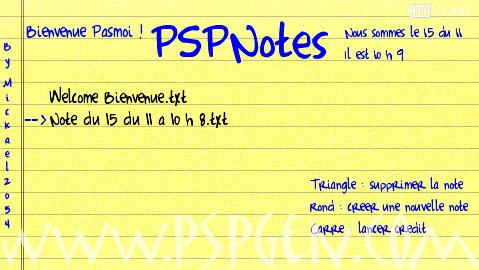 Bienvenue Pasmoi !
PSPNotes
Nous sommes le 15 du 11
il est 10 h 9
By Mickael2054
Welcome Bienvenue.txt
--> Note du 15 du 11 a 10 h 8.txt
Triangle : supprimer la note
Rond : creer une nouvelle note
Carre : lancer credit
www.PSPGEN.com